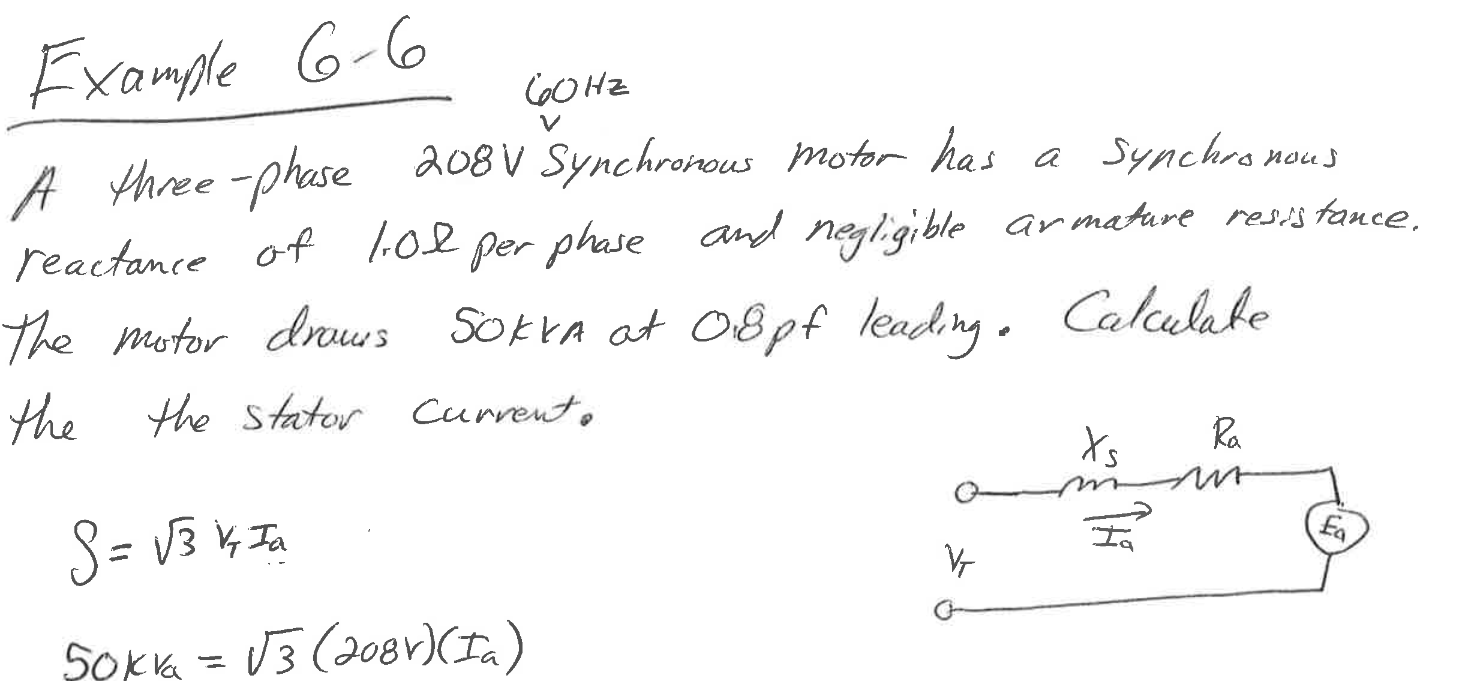 Example 6-6
60Hz
A three-phase 208V Synchronous motor has a synchronous
reactance of 1.0Ω per phase and negligible armature resistance.
The motor draws 50kVA at 0.8pf leading. Calculate
the the stator current.
Xs Ra
Ia
Ea
VT
S = √3 VT Ia
50kVa = √3 (208V)(Ia)